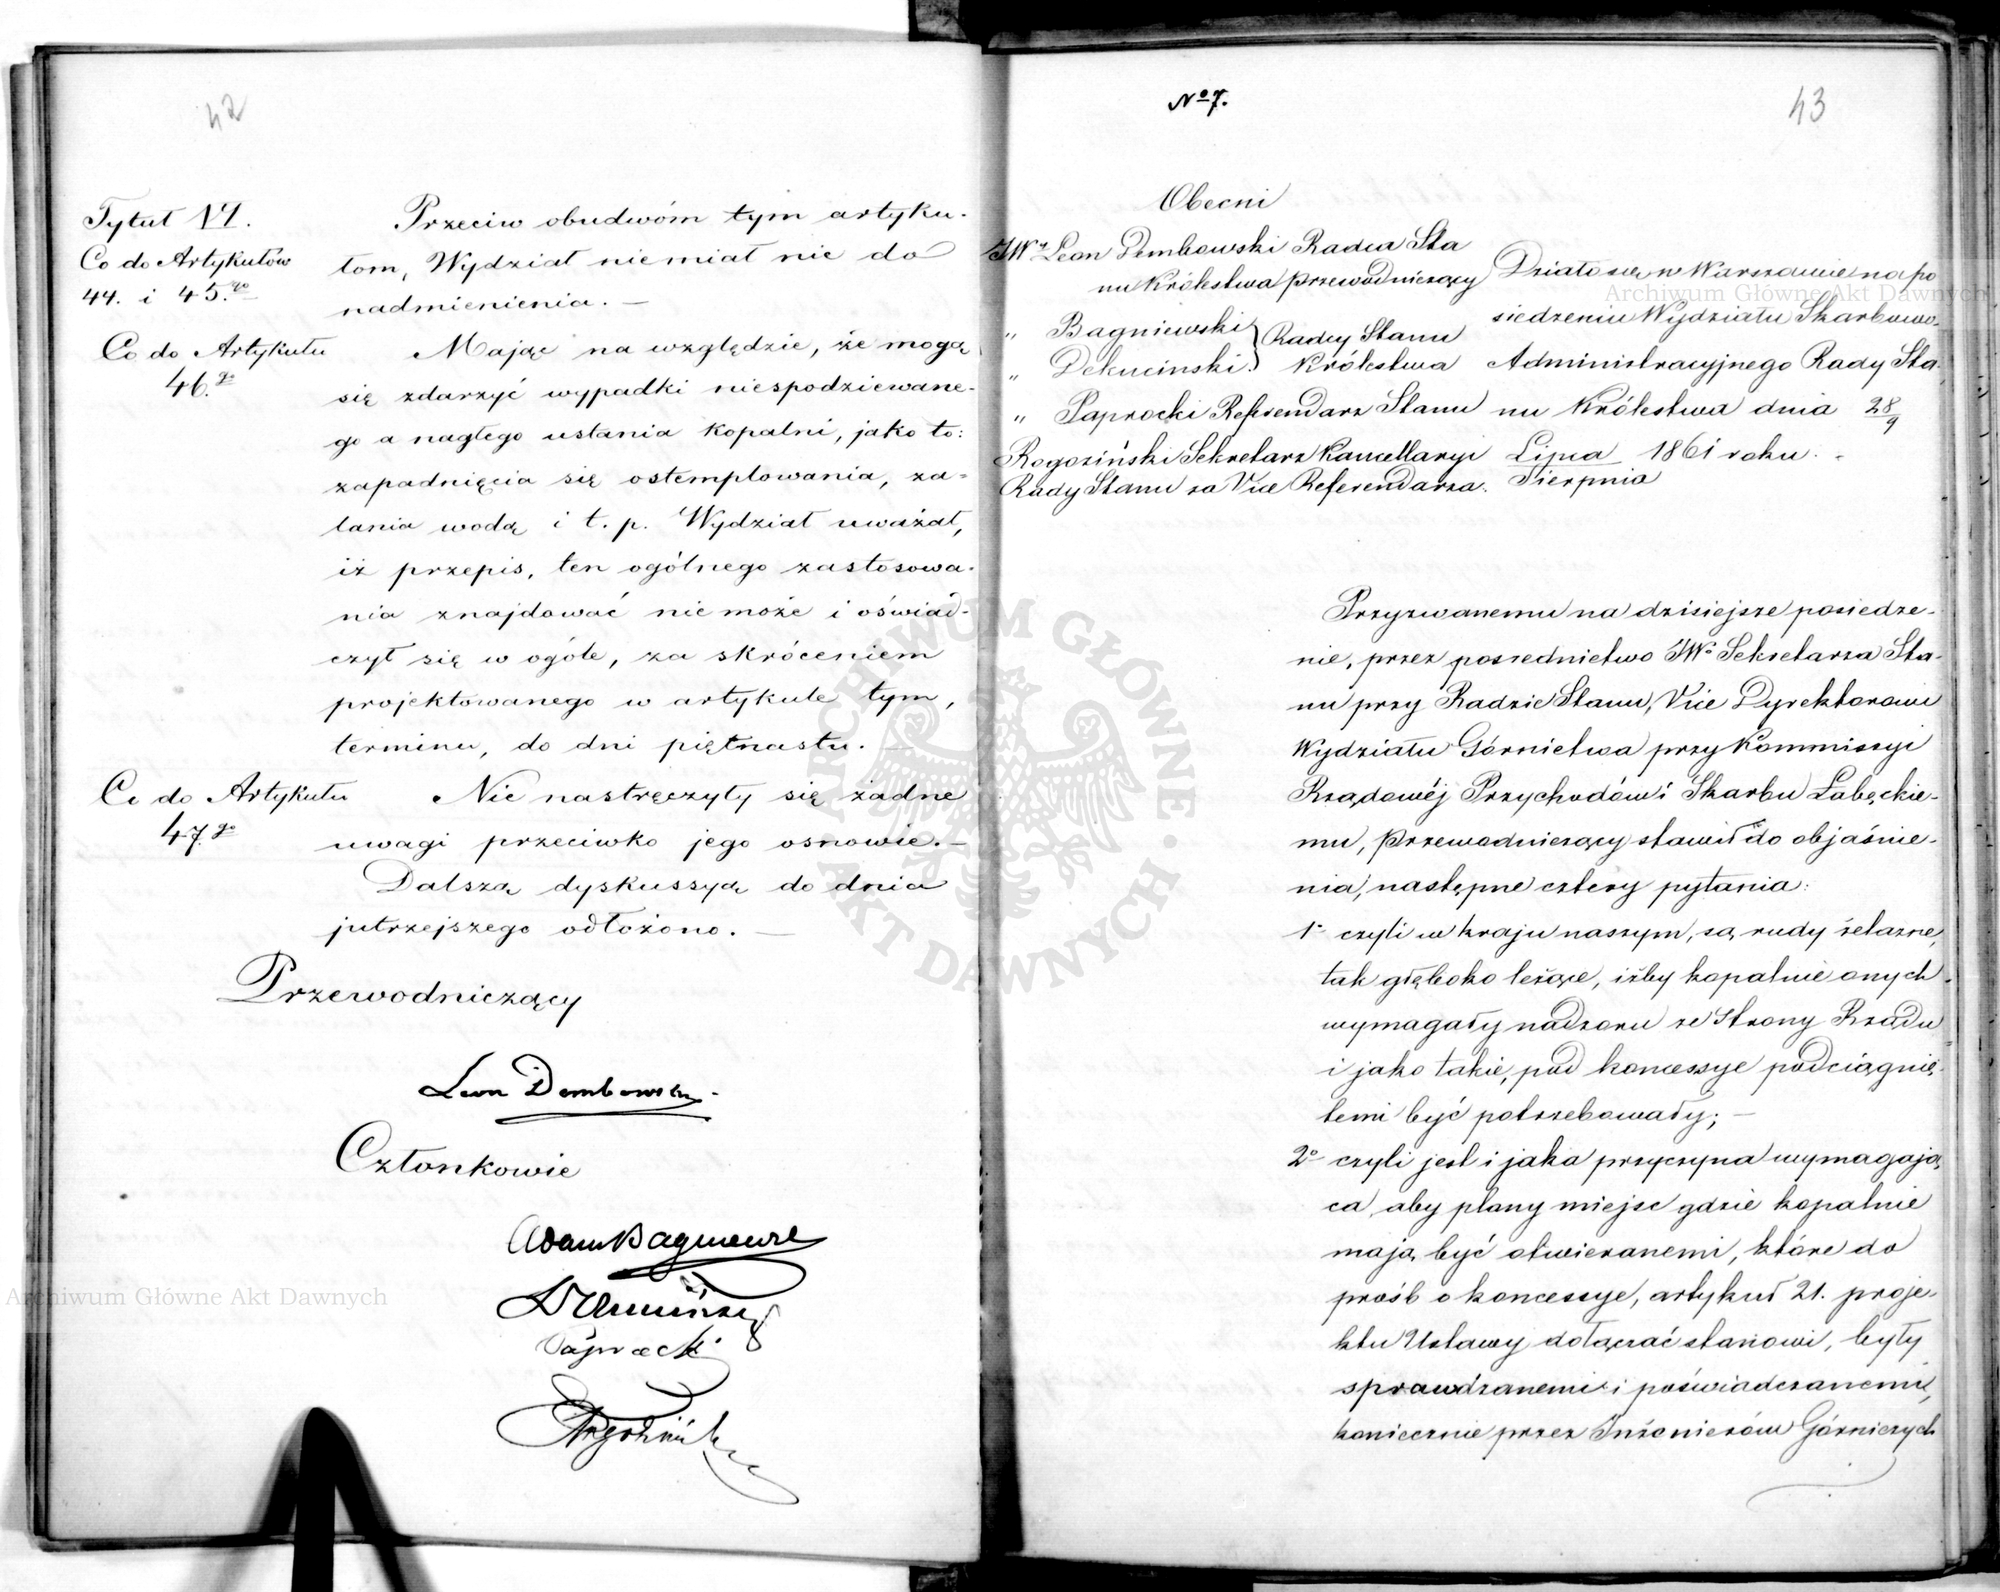 42
Tytuł VI.
Co do Artykułów
44. i 45.go
Przeciw obudwóm tym artyku-
łom, Wydział niemiał nic do
nadmienienia. —
Co do Artykułu
46.go
Mając na względzie, że mogą
się zdarzyć wypadki niespodziewane-
go a nagłego ustania kopalni, jako to:
zapadnięcia się ostemplowania, za-
lania wodą i t. p. Wydział uważał,
iż przepis, ten ogólnego zastosowa-
nia znajdować nie może i oświad-
czył się w ogóle, za skróceniem
projektowanego w artykule tym,
terminu, do dni piętnastu. —
Co do Artykułu
47.go
Nie nastręczyły się żadne
uwagi przeciwko jego osnowie. —
Dalszą dyskussyą do dnia
jutrzejszego odłożono. —
Przewodniczący
Leon Dembowski
Członkowie
Adam Bagniewski
Paprocki
Rogoziński
No 7.
43
Obecni
JWy Leon Dembowski Radca Sta
nu Królestwa Przewodniczący
„ Bagniewski } Radcy Stanu
„ Dekuciński } Królestwa
„ Paprocki Referendarz Stanu
Rogoziński Sekretarz Kancellaryi
Rady Stanu za Vice Referendarza.
Działo się w Warszawie na po
siedzeniu Wydziału Skarbowo-
Administracyjnego Rady Sta-
nu Królestwa dnia 28/9
Lipca 1861 roku.
Sierpnia
Przyzwanemu na dzisiejsze posiedze-
nie, przez posrednictwo JWo Sekretarza Sta-
nu przy Radzie Stanu, Vice Dyrektorowi
Wydziału Górnictwa przy Kommissyi
Rządowéj Przychodów i Skarbu Łabęckie-
mu, Przewodniczący stawił do objaśnie-
nia, następne cztery pytania:
1o czyli w kraju naszym, są rudy żelazne,
tak głęboko leżące, iżby kopalnie onych
wymagały nadzoru ze strony Rządu
i jako takie, pod koncessye podciągnię-
temi być potrzebowały; —
2o czyli jest i jaka przyczyna wymagają-
ca, aby plany miejsc gdzie kopalnie
mają być otwieranemi, które do
prośb o koncessye, artykuł 21. proje-
ktu Ustawy dołączać stanowi, były
sprawdzanemi i poświadczanemi,
koniecznie przez Inżenierów Górniczych
Archiwum Główne Akt Dawnych
Archiwum Główne Akt Dawnych
ARCHIWUM GŁÓWNE AKT DAWNYCH